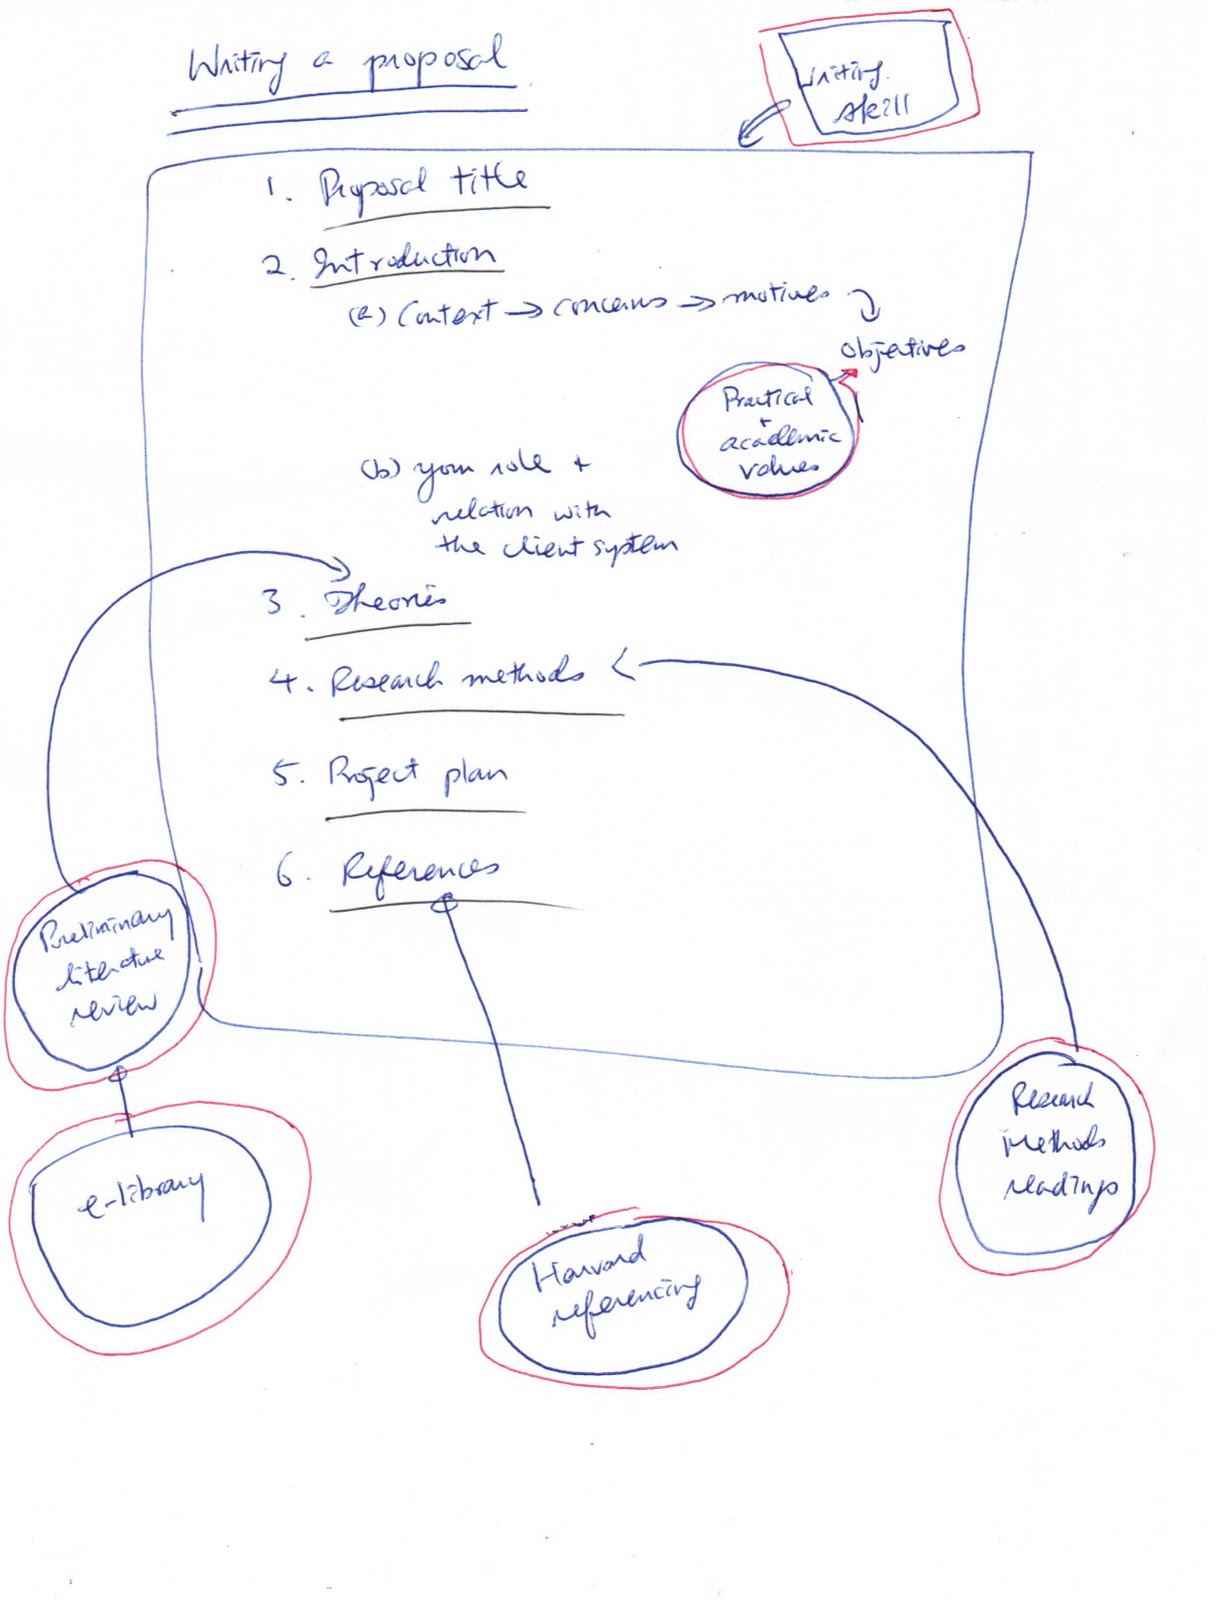 Writing a proposal
Writing
skill
1. Proposal title
2. Introduction
(a) Context → concerns → motives
objectives
Practical
+
academic
values
(b) your role +
relation with
the client system
3. Theories
4. Research methods
5. Project plan
6. References
Preliminary
literature
review
e-library
Harvard
referencing
Research
Methods
readings